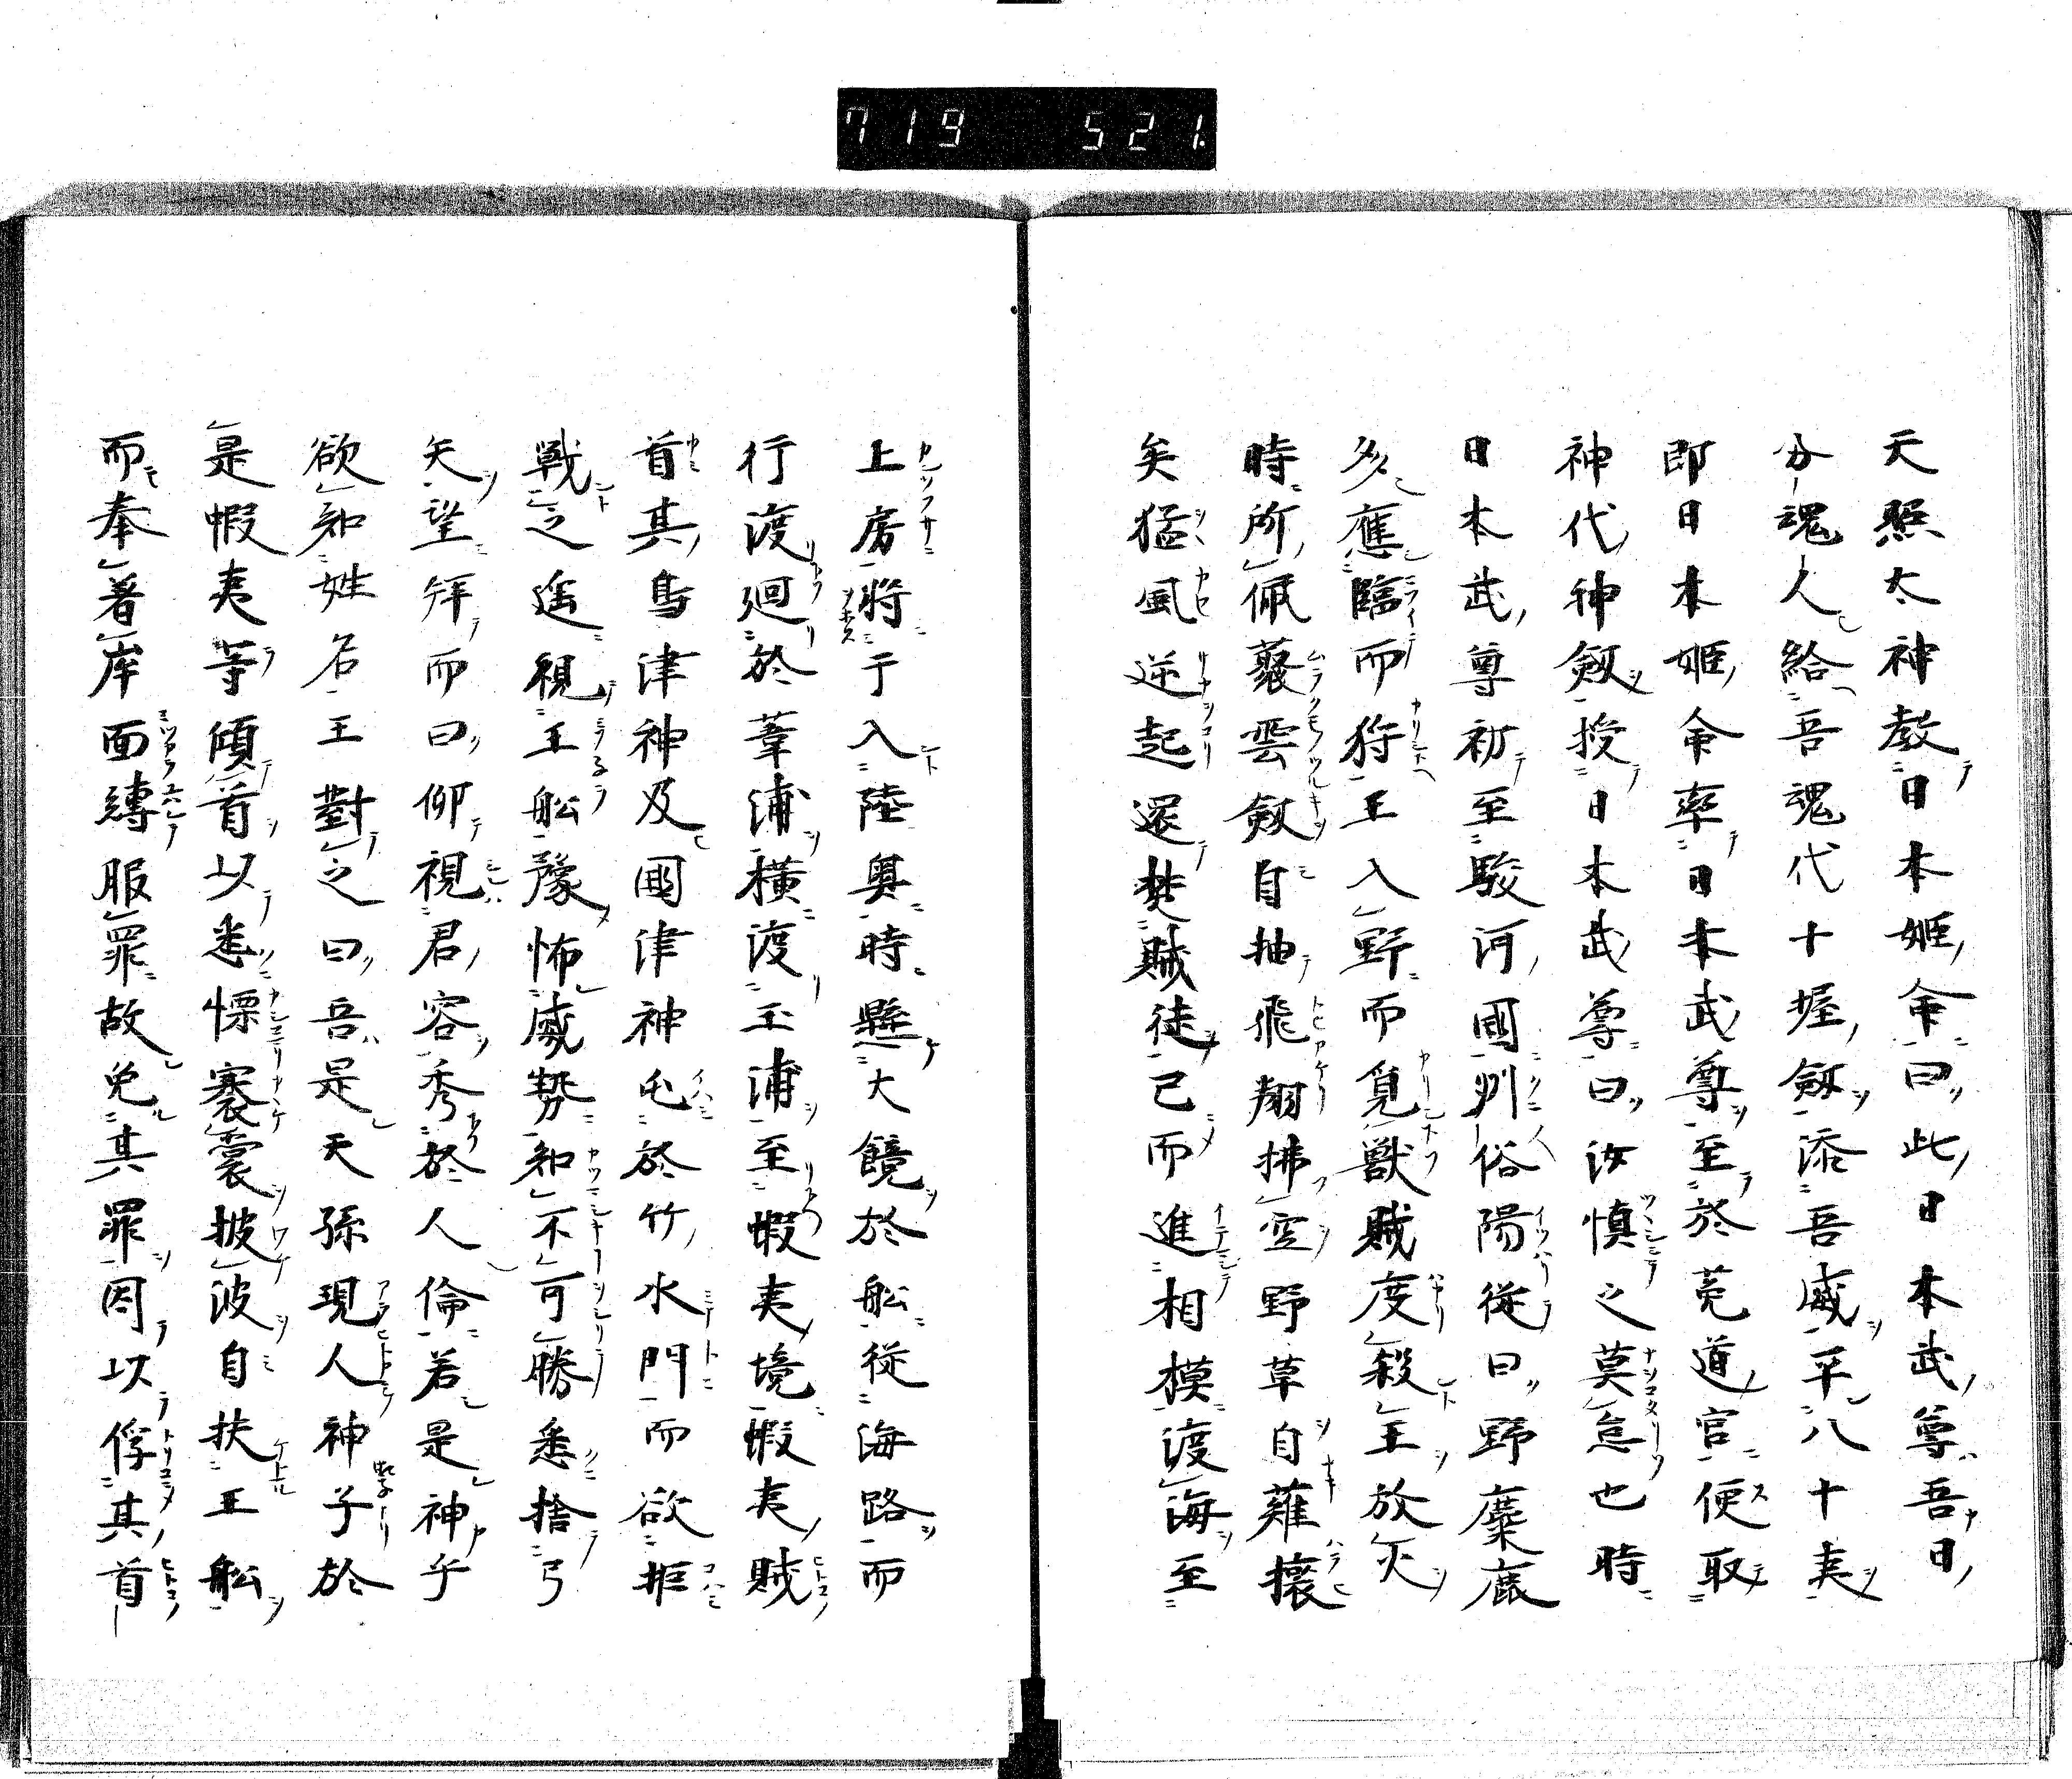 719 521.
天照太神教日本姫命曰此日本武尊吾日
分魂人給吾魂代十握劔添吾威平八十夷
即日本姫命率日本武尊至於菟道宮便取
神代神劔授日本武尊曰汝慎之莫怠也時
日本武尊初至駿河國州俗陽従曰野麋鹿
多應臨而狩王入野而覓獣賊度殺王放火
時所佩藂雲劔自抽飛翔拂空野草自薙攘
矣猛風逆起還焚賊徒已而進相模渡海至
上房将于入陸奥時懸大鏡於舩従海路而
行渡廻於葦浦横渡玉浦至蝦夷境蝦夷賊
首其嶋津神及國津神屯於竹水門而欲拒
戰之遥視王舩豫怖威勢知不可勝悉捨弓
矢望拜而曰仰視君容秀於人倫若是神乎
欲知姓名王對之曰吾是天孫現人神子於
是蝦夷等傾首以悉慄褰裳披波自扶王舩
而奉著岸面縛服罪故免其罪因以俘其首